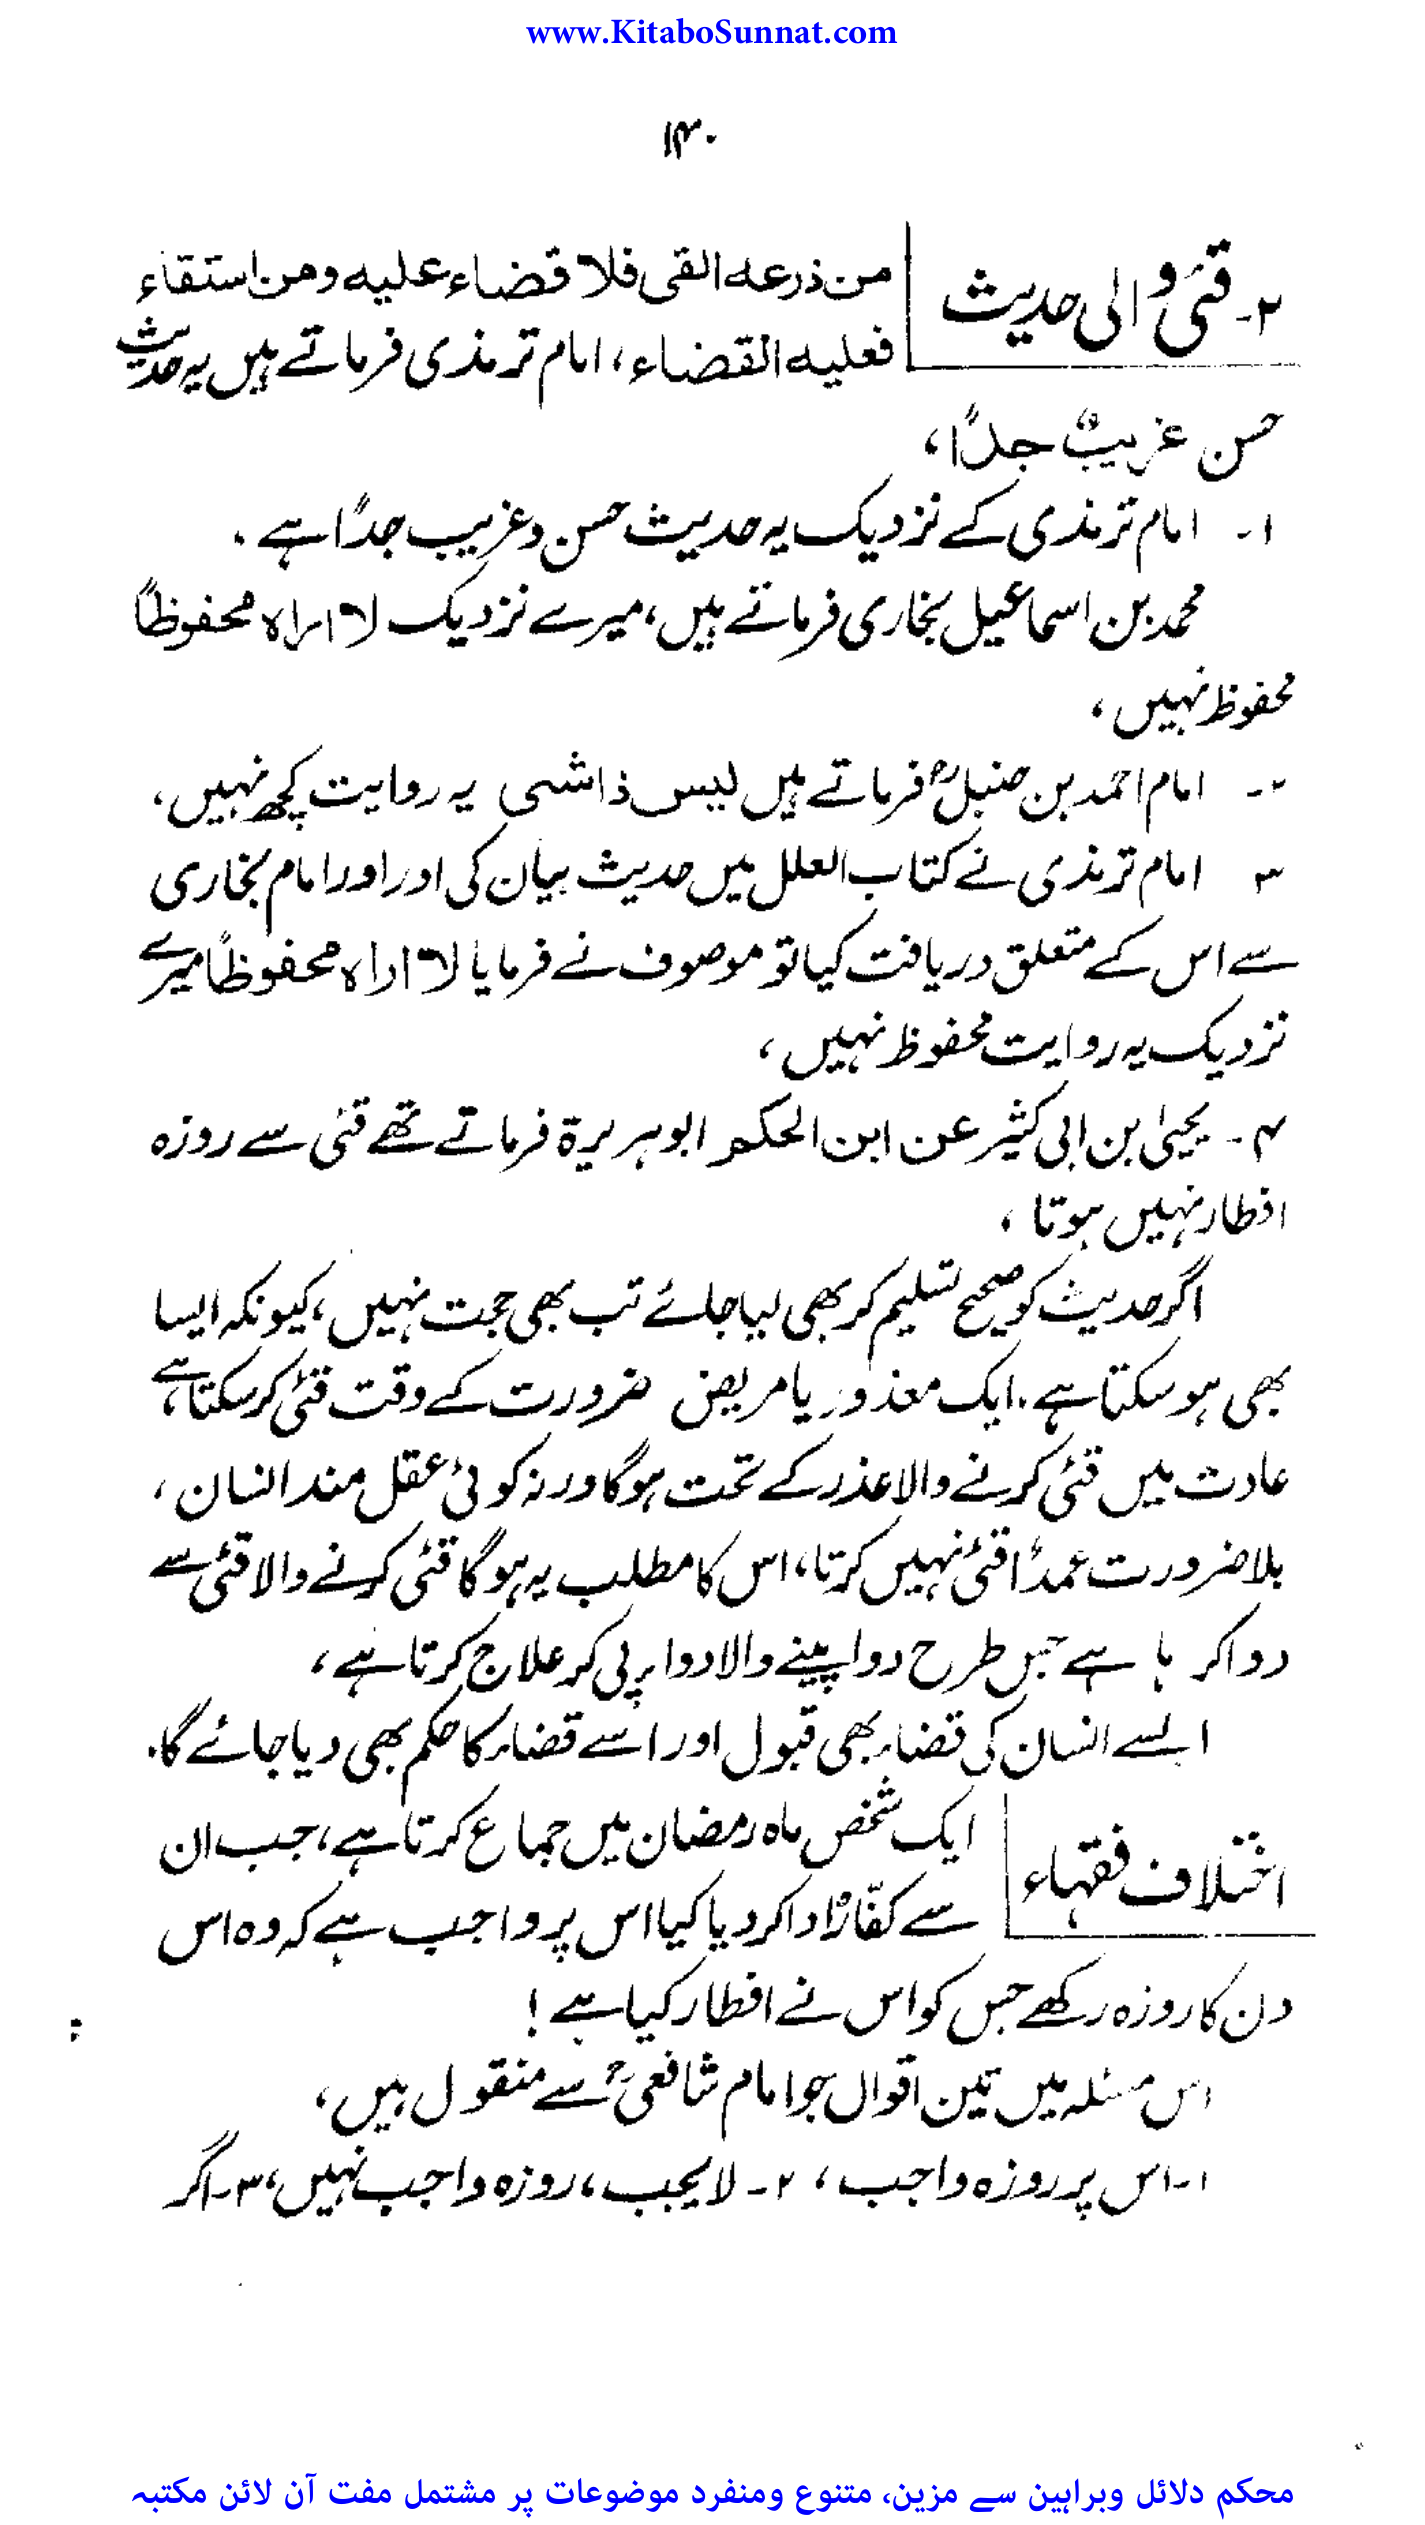 www.KitaboSunnat.com
۱۴۰
۲۔ قئی والی حدیث
من ذرعه القی فلا قضاء علیه ومن استقاء
فعلیه القضاء، امام ترمذی فرماتے ہیں یہ حدیث
حسن غریبٌ جدًا،
۱۔ امام ترمذی کے نزدیک یہ حدیث حسن وغریب جدًا ہے۔
محمد بن اسماعیل بخاری فرماتے ہیں، میرے نزدیک لا اراہ محفوظاً
محفوظ نہیں،
۲۔ امام احمد بن حنبلؒ فرماتے ہیں لیس ذاشی یہ روایت کچھ نہیں،
۳ امام ترمذی نے کتاب العلل میں حدیث بیان کی اور اور امام بخاری
سے اس کے متعلق دریافت کیا تو موصوف نے فرمایا لا اراہ محفوظاً میرے
نزدیک یہ روایت محفوظ نہیں،
۴۔ یحییٰ بن ابی کثیر عن ابن الحکم ابوہریرۃ فرماتے تھے قئی سے روزہ
افطار نہیں ہوتا،
اگر حدیث کو صحیح تسلیم کر بھی لیا جائے تب بھی حجت نہیں، کیونکہ ایسا
بھی ہو سکتا ہے۔ ایک معذور یا مریض ضرورت کے وقت قئی کر سکتا ہے،
عادت میں قئی کرنے والا عذر کے تحت ہوگا ورنہ کوئی عقل مند انسان،
بلا ضرورت عمدًا قئی نہیں کرتا، اس کا مطلب یہ ہوگا قئی کرنے والا قئی سے
دوا کر ہا ہے جس طرح دوا پینے والا دوا پی کر علاج کرتا ہے،
ایسے انسان کی قضاء بھی قبول اور اسے قضاء کا حکم بھی دیا جائے گا۔
اختلاف فقہاء
ایک شخص ماہ رمضان میں جماع کرتا ہے، جب ان
سے کفّارہ ادا کر دیا کیا اس پر واجب ہے کہ وہ اس
دن کا روزہ رکھے جس کو اس نے افطار کیا ہے!
اس مسئلہ میں تین اقوال جو امام شافعیؒ سے منقول ہیں،
۱۔ اس پر روزہ واجب، ۲۔ لا یجب، روزہ واجب نہیں، ۳۔ اگر
محکم دلائل وبراہین سے مزین، متنوع ومنفرد موضوعات پر مشتمل مفت آن لائن مکتبہ